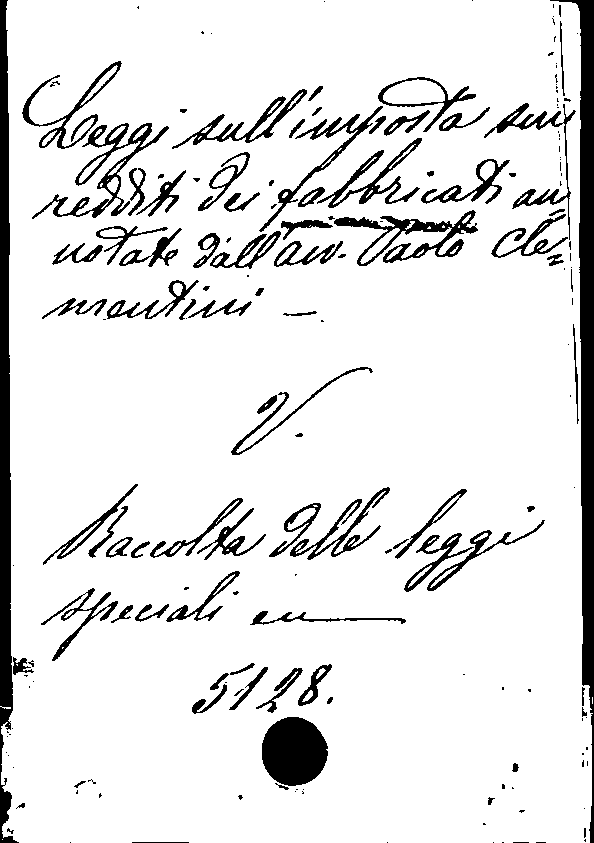 Leggi sull'imposta sui
redditi dei fabbricati an-
notate dall'avv. Paolo Cle=
mentini —
V.
Raccolta delle leggi
speciali
5128.